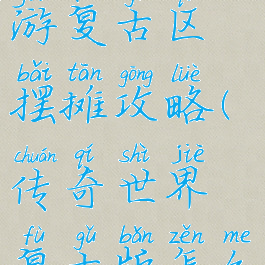 游复古区
bǎi tān gōng lüè
摆摊攻略(
chuán qí shì jiè
传奇世界
fù gǔ bǎn zěn me
复古版怎么